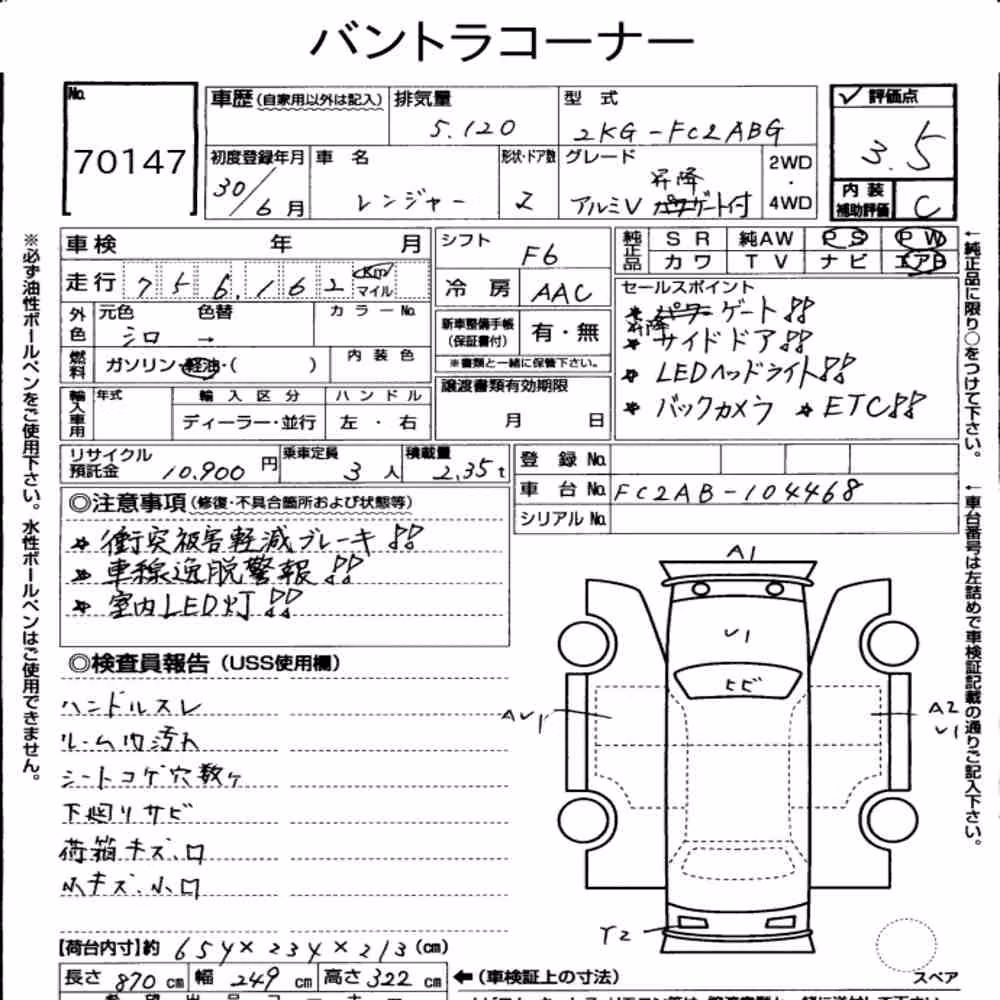 バントラコーナー
No.
70147
車歴(自家用以外は記入)
排気量
5.120
型 式
2KG-FC2ABG
✓ 評価点
3.5
内装補助評価
C
初度登録年月
30/6月
車 名
レンジャー
形状・ドア数
2
グレード
昇降
アルミV パワーゲート付
2WD
・
4WD
車検 年 月
走行 756.162 Km マイル
シフト F6
冷 房 AAC
純正品 S R 純AW P S P W
カ ワ T V ナ ビ エアB
外色 元色 色替 カラーNo.
シロ →
新車整備手帳(保証書付) 有・無
※書類と一緒に保管下さい。
燃料 ガソリン・軽油・( ) 内 装 色
セールスポイント
* パワーゲート!!
昇降
* サイドドア!!
* LEDヘッドライト!!
* バックカメラ * ETC!!
輸入車用 年式 輸 入 区 分 ハ ン ド ル
ディーラー・並行 左 ・ 右
譲渡書類有効期限
月 日
リサイクル預託金 10.900 円
乗車定員 3 人
積載量 2.35 t
登 録 No.
車 台 No. FC2AB-104468
シリアル No.
◎注意事項(修復・不具合箇所および状態等)
* 衝突被害軽減ブレーキ!!
* 車線逸脱警報!!
* 室内LED灯!!
◎検査員報告(USS使用欄)
ハンドルスレ
ルーム内汚れ
シートコゲ穴数ケ
下廻りサビ
荷箱キズ、凹
小キズ、小凹
A1
U1
ヒビ
AU1
A2
U1
T2
スペア
【荷台内寸】約 654×234×213(cm)
長さ 870 cm 幅 249 cm 高さ 322 cm
←(車検証上の寸法)
※必ず油性ボールペンをご使用下さい。水性ボールペンはご使用できません。
←純正品に限り○をつけて下さい。
←車台番号は左詰めで車検証記載の通りご記入下さい。